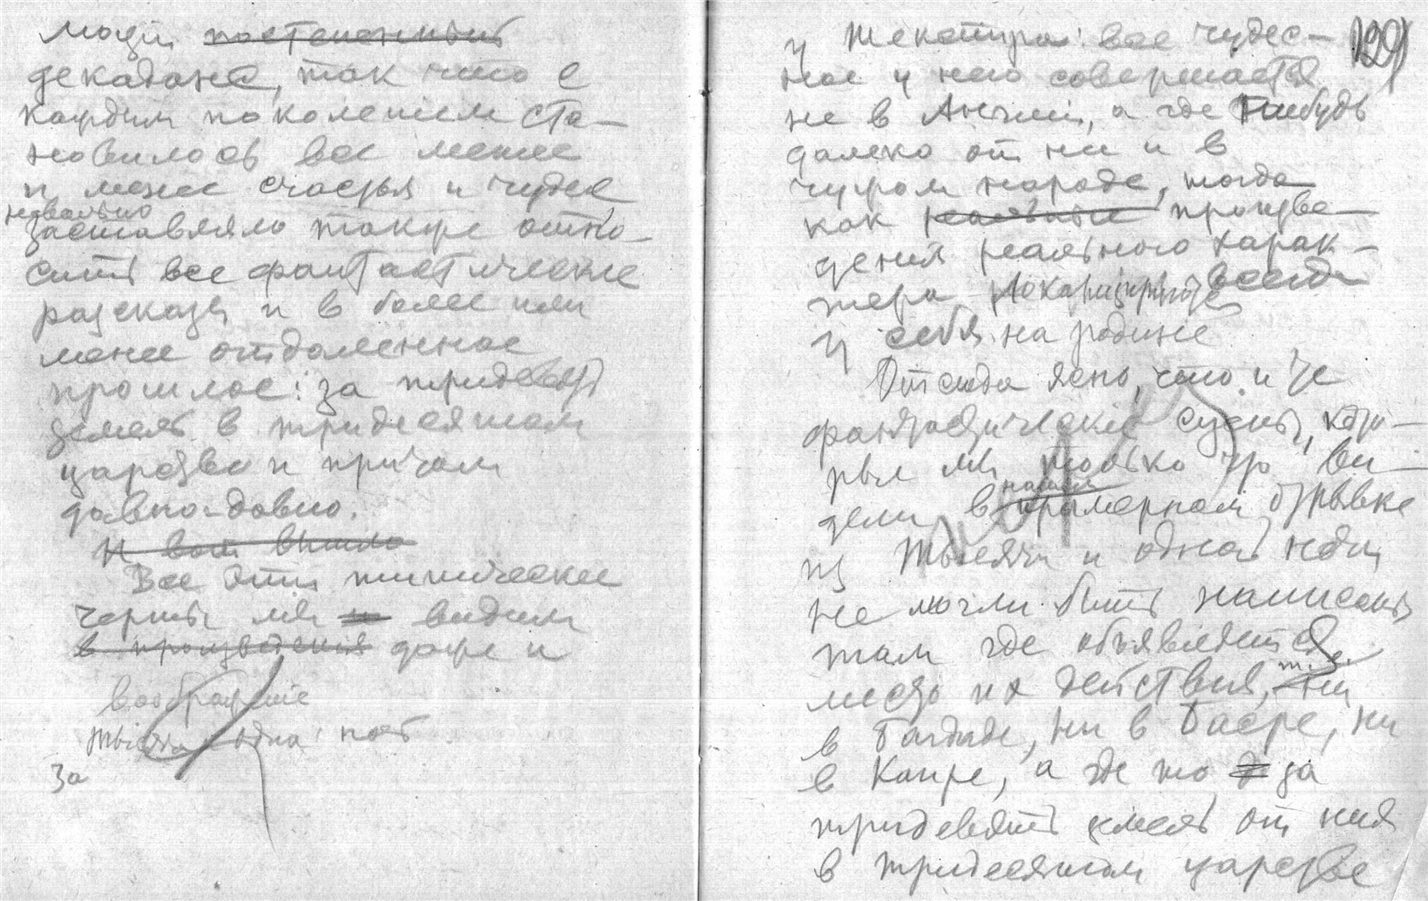 людей постепенный
декаданс, так что с
каждым поколением ста-
новилось все менее
и менее счастья и чудес
невольно
заставляло также отно-
сить все фантастические
рассказы и в более или
менее отдаленное
прошлое: за тридевять
земель в тридесятом
царстве и притом
давно-давно.
И вот видно
Все эти типические
черты мы видим
в произведения даже и
воображение
тысяча одна
За
129
у Шекспира: все чудес-
ное у него совершается
не в Англии, а где нибудь
далеко от ни и в
чужом народе, тогда
как реальные произве-
дения реального харак-
тера локализирует всегда
у себя на родине
Отсюда ясно, что и те
фантастические сцены, кото-
рые мы только что ви-
дели в
нашем
примерном отрывке
из Тысячи и одной ночи
не могли быть написаны
там где объявляется
место их действия, т.е. ни
в Багдаде, ни в Басре, ни
в Каире, а где то за
тридевять земель от них
в тридесятом царстве